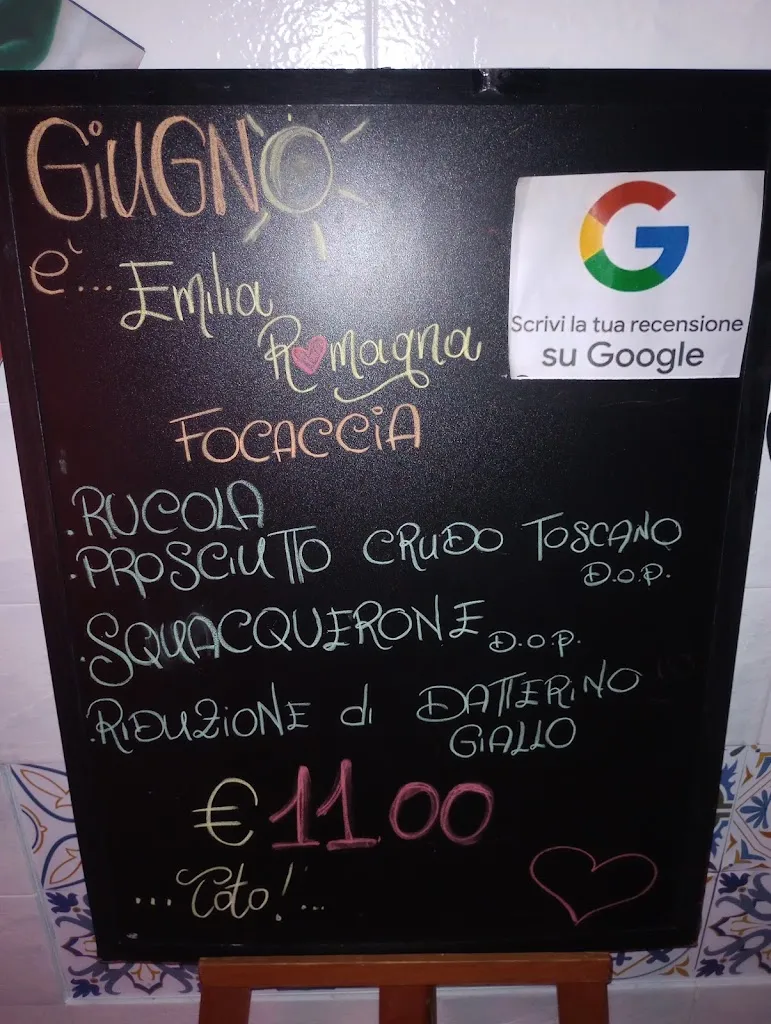 GiUGNO
e'... Emilia
Romagna
FOCACCiA
.RUCOLA
.PROSCIUTTO CRUDO TOSCANO
D.O.P.
.SQUACQUERONE D.O.P.
.RIDUZIONE di DATTERINO
GIALLO
€11.00
... Toto!...
G
Scrivi la tua recensione
su Google